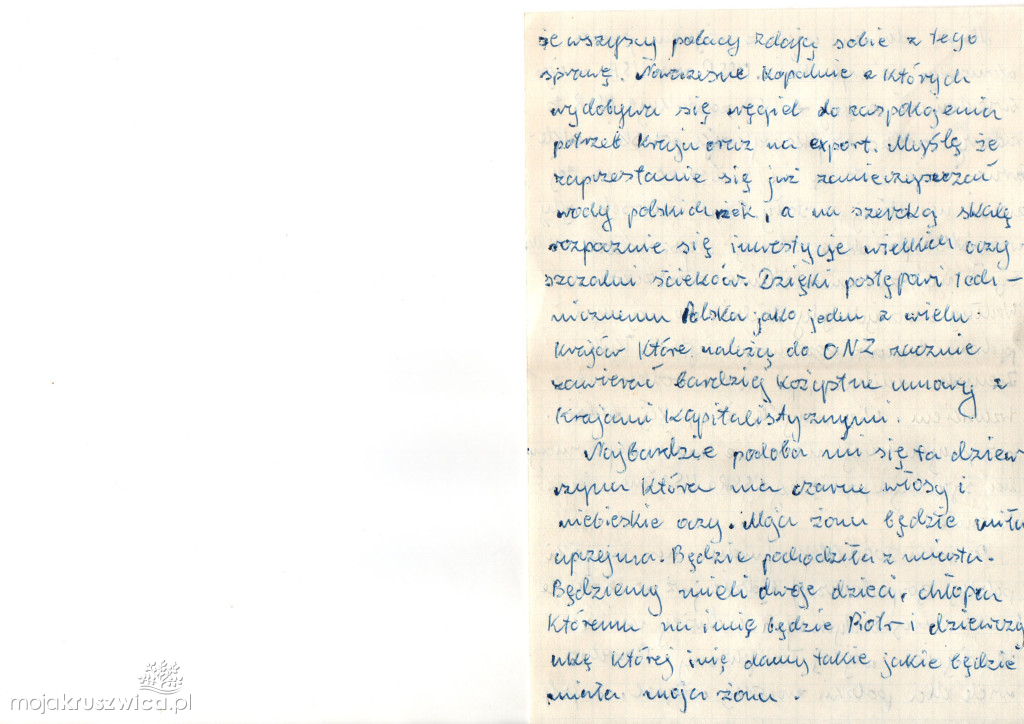 że wszyscy polacy zdają sobie z tego
sprawę. Nowoczesne kopalnie z których
wydobywa się węgiel do zaspokojenia
potrzeb kraju oraz na export. Myślę że
zaprzestanie się już zanieczyszczać
wody polskich rzek, a na szeroką skalę
rozpocznie się inwestycje wielkich oczy
szczalni ścieków. Dzięki postępowi tech-
nicznemu Polska jako jeden z wielu
krajów które należą do ONZ zacznie
zawierać bardziej kożystne umowy z
krajami kapitalistycznymi.
Najbardzie podoba mi się ta dziew
czyna która ma czarne włosy i
niebieskie oczy. Moja żona będzie miła
uprzejma. Będzie pochodziła z miasta.
Będziemy mieli dwoje dzieci, chłopca
któremu na imię będzie Piotr i dziewczy
nkę której imię damy takie jakie będzie
miała moja żona.
mojakruszwica.pl